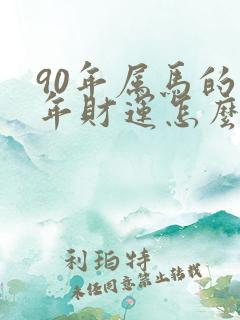 90年属馬的
年財運怎麼
利珀特
未经同意禁止转载